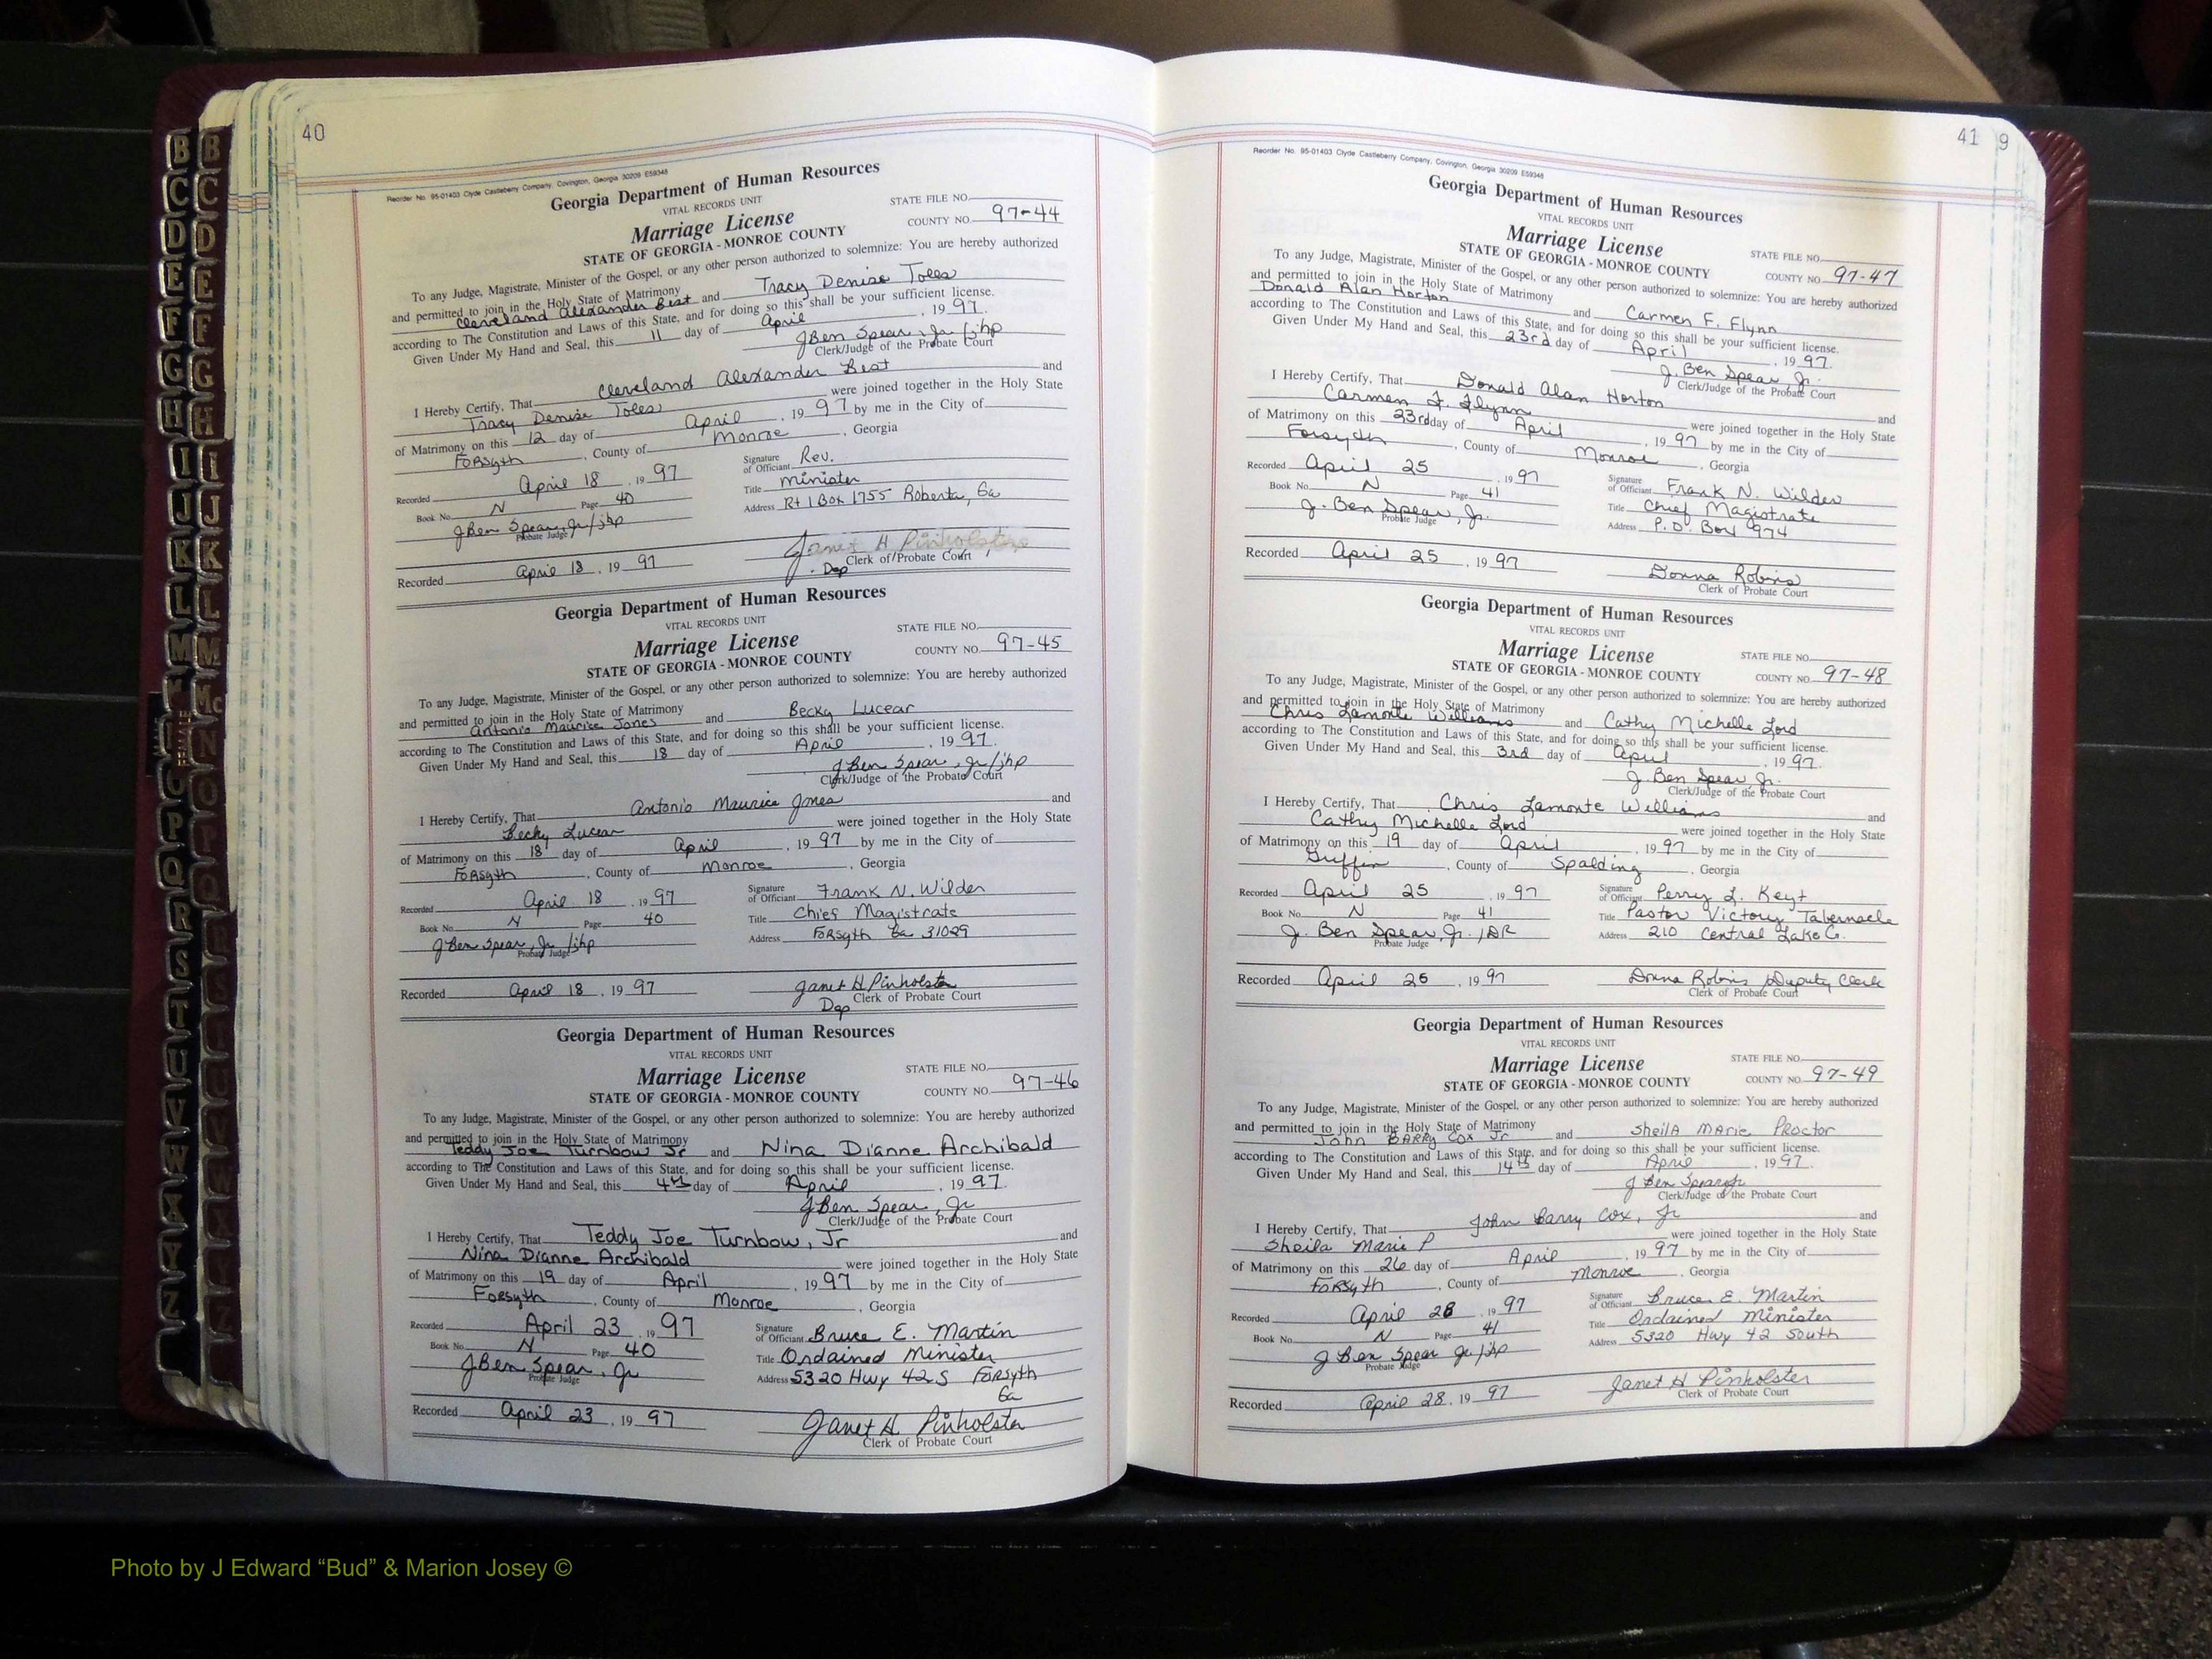 40
Reorder No. 95-01403 Clyde Castleberry Company, Covington, Georgia 30209 E59348
Georgia Department of Human Resources
VITAL RECORDS UNIT
STATE FILE NO.
Marriage License
COUNTY NO. 97-44
STATE OF GEORGIA - MONROE COUNTY
To any Judge, Magistrate, Minister of the Gospel, or any other person authorized to solemnize: You are hereby authorized
and permitted to join in the Holy State of Matrimony
Cleveland Alexander Best and Tracy Denise Toles
according to The Constitution and Laws of this State, and for doing so this shall be your sufficient license.
Given Under My Hand and Seal, this 11 day of April, 1997.
J Ben Spear, Jr/jhp
Clerk/Judge of the Probate Court
I Hereby Certify, That Cleveland Alexander Best and
Tracy Denise Toles were joined together in the Holy State
of Matrimony on this 12 day of April, 1997 by me in the City of
Forsyth, County of Monroe, Georgia
Recorded April 18, 1997
Signature of Officiant Rev.
Book No. N Page 40
Title minister
J Ben Spear, Jr/jhp
Probate Judge
Address Rt 1 Box 1755 Roberta, Ga
Recorded April 18, 1997
Janet H Pinholster
Dep Clerk of Probate Court
Georgia Department of Human Resources
VITAL RECORDS UNIT
STATE FILE NO.
Marriage License
COUNTY NO. 97-45
STATE OF GEORGIA - MONROE COUNTY
To any Judge, Magistrate, Minister of the Gospel, or any other person authorized to solemnize: You are hereby authorized
and permitted to join in the Holy State of Matrimony
Antonio Maurice Jones and Becky Lucear
according to The Constitution and Laws of this State, and for doing so this shall be your sufficient license.
Given Under My Hand and Seal, this 18 day of April, 1997.
J Ben Spear, Jr/jhp
Clerk/Judge of the Probate Court
I Hereby Certify, That Antonio Maurice Jones and
Becky Lucear were joined together in the Holy State
of Matrimony on this 18 day of April, 1997 by me in the City of
Forsyth, County of Monroe, Georgia
Recorded April 18, 1997
Signature of Officiant Frank N. Wilder
Book No. N Page 40
Title Chief Magistrate
J Ben Spear, Jr/jhp
Probate Judge
Address Forsyth Ga 31029
Recorded April 18, 1997
Janet H Pinholster
Dep Clerk of Probate Court
Georgia Department of Human Resources
VITAL RECORDS UNIT
STATE FILE NO.
Marriage License
COUNTY NO. 97-46
STATE OF GEORGIA - MONROE COUNTY
To any Judge, Magistrate, Minister of the Gospel, or any other person authorized to solemnize: You are hereby authorized
and permitted to join in the Holy State of Matrimony
Teddy Joe Turnbow Jr and Nina Dianne Archibald
according to The Constitution and Laws of this State, and for doing so this shall be your sufficient license.
Given Under My Hand and Seal, this 4th day of April, 1997.
J Ben Spear, Jr
Clerk/Judge of the Probate Court
I Hereby Certify, That Teddy Joe Turnbow, Jr and
Nina Dianne Archibald were joined together in the Holy State
of Matrimony on this 19 day of April, 1997 by me in the City of
Forsyth, County of Monroe, Georgia
Recorded April 23, 1997
Signature of Officiant Bruce E. Martin
Book No. N Page 40
Title Ordained Minister
J Ben Spear, Jr
Probate Judge
Address 5320 Hwy 42 S Forsyth
Ga
Recorded April 23, 1997
Janet H. Pinholster
Clerk of Probate Court
41 9
Reorder No. 95-01403 Clyde Castleberry Company, Covington, Georgia 30209 E59348
Georgia Department of Human Resources
VITAL RECORDS UNIT
Marriage License
STATE FILE NO.
STATE OF GEORGIA - MONROE COUNTY
COUNTY NO. 97-47
To any Judge, Magistrate, Minister of the Gospel, or any other person authorized to solemnize: You are hereby authorized
and permitted to join in the Holy State of Matrimony
Donald Alan Horton and Carmen F. Flynn
according to The Constitution and Laws of this State, and for doing so this shall be your sufficient license.
Given Under My Hand and Seal, this 23rd day of April, 1997.
J. Ben Spear, Jr.
Clerk/Judge of the Probate Court
I Hereby Certify, That Donald Alan Horton and
Carmen F. Flynn were joined together in the Holy State
of Matrimony on this 23rd day of April, 1997 by me in the City of
Forsyth, County of Monroe, Georgia
Recorded April 25, 1997
Signature of Officiant Frank N. Wilder
Book No. N Page 41
Title Chief Magistrate
J. Ben Spear, Jr.
Probate Judge
Address P.O. Box 974
Recorded April 25, 1997
Donna Robins
Clerk of Probate Court
Georgia Department of Human Resources
VITAL RECORDS UNIT
Marriage License
STATE FILE NO.
STATE OF GEORGIA - MONROE COUNTY
COUNTY NO. 97-48
To any Judge, Magistrate, Minister of the Gospel, or any other person authorized to solemnize: You are hereby authorized
and permitted to join in the Holy State of Matrimony
Chris Lamonte Williams and Cathy Michelle Lord
according to The Constitution and Laws of this State, and for doing so this shall be your sufficient license.
Given Under My Hand and Seal, this 3rd day of April, 1997.
J. Ben Spear, Jr.
Clerk/Judge of the Probate Court
I Hereby Certify, That Chris Lamonte Williams and
Cathy Michelle Lord were joined together in the Holy State
of Matrimony on this 19 day of April, 1997 by me in the City of
Griffin, County of Spalding, Georgia
Recorded April 25, 1997
Signature of Officiant Perry L. Keyt
Book No. N Page 41
Title Pastor Victory Tabernacle
J. Ben Spear, Jr. /DR
Probate Judge
Address 210 Central Lake C.
Recorded April 25, 1997
Donna Robins /Deputy Clerk
Clerk of Probate Court
Georgia Department of Human Resources
VITAL RECORDS UNIT
Marriage License
STATE FILE NO.
STATE OF GEORGIA - MONROE COUNTY
COUNTY NO. 97-49
To any Judge, Magistrate, Minister of the Gospel, or any other person authorized to solemnize: You are hereby authorized
and permitted to join in the Holy State of Matrimony
John Barry Cox Jr and Sheila Marie Proctor
according to The Constitution and Laws of this State, and for doing so this shall be your sufficient license.
Given Under My Hand and Seal, this 14th day of April, 1997.
J Ben Spear Jr
Clerk/Judge of the Probate Court
I Hereby Certify, That John Barry Cox, Jr and
Sheila Marie P were joined together in the Holy State
of Matrimony on this 26 day of April, 1997 by me in the City of
Forsyth, County of Monroe, Georgia
Recorded April 28, 1997
Signature of Officiant Bruce E. Martin
Book No. N Page 41
Title Ordained Minister
J Ben Spear Jr/jhp
Probate Judge
Address 5320 Hwy 42 South
Recorded April 28, 1997
Janet H Pinholster
Clerk of Probate Court
Photo by J Edward “Bud” & Marion Josey ©